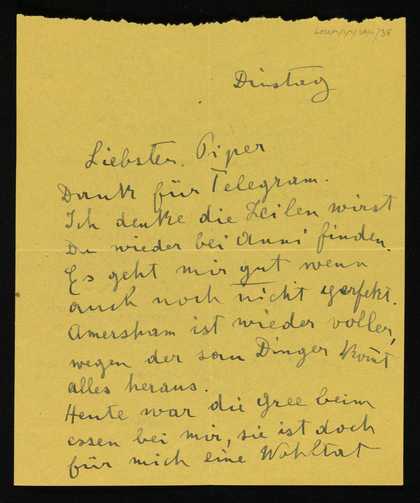 Dinstag
Liebster Piper
Dank für Telegram.
Ich denke die Zeilen wirst
Du wieder bei Anni finden.
Es geht mir gut wenn
auch noch nicht perfekt.
Amersham ist wieder voller,
wegen der Dinger kommt
alles heraus.
Heute war die Gree beim
essen bei mir, sie ist doch
für mich eine Wohltat